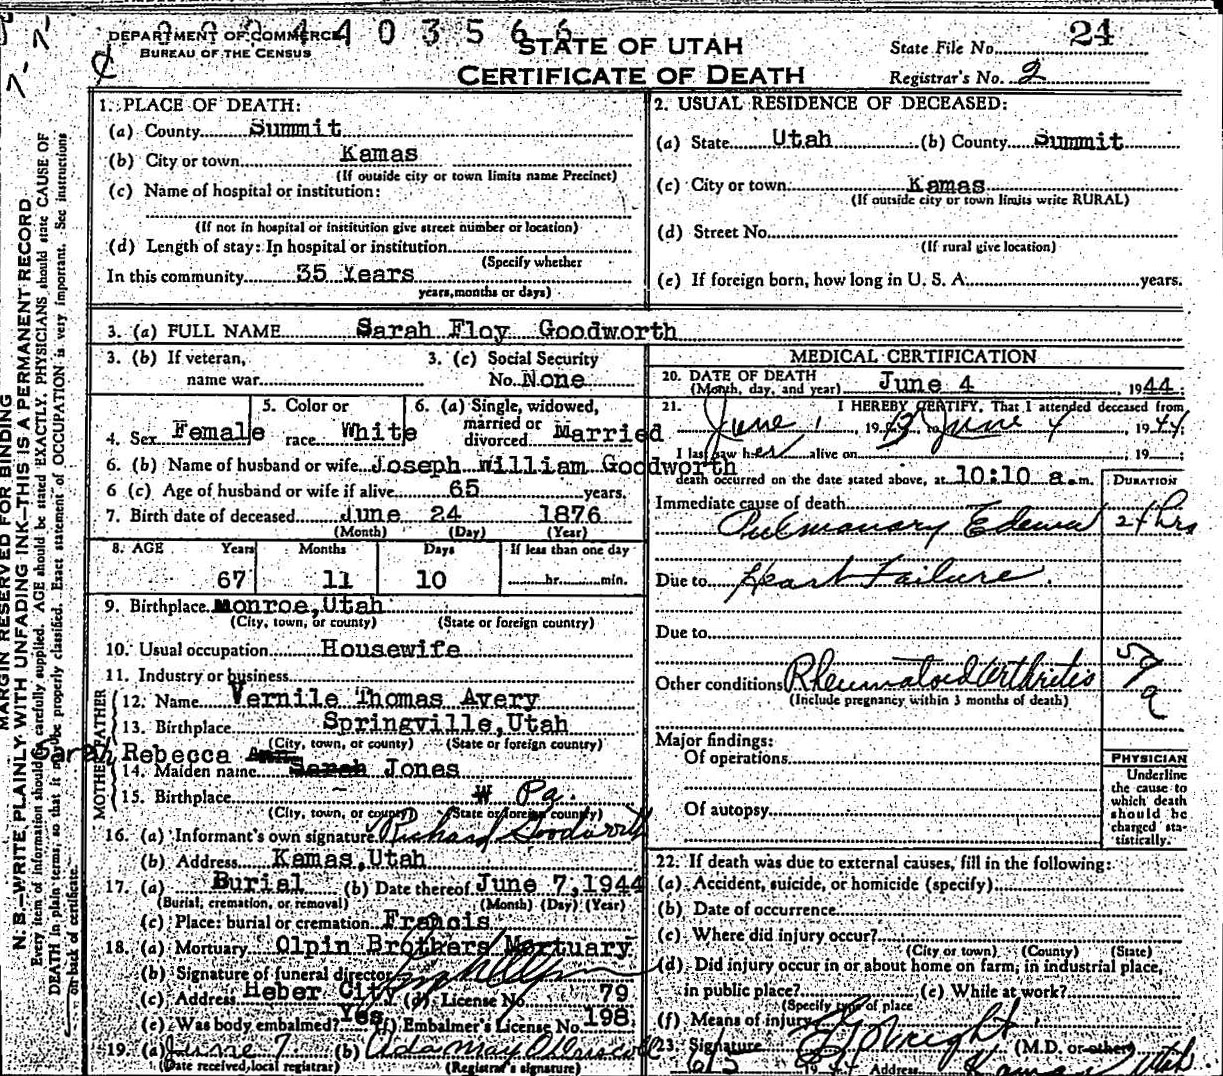 DEPARTMENT OF COMMERCE
BUREAU OF THE CENSUS
403566
STATE OF UTAH
CERTIFICATE OF DEATH
State File No. 24
Registrar's No. 2
MARGIN RESERVED FOR BINDING
N. B.—WRITE PLAINLY WITH UNFADING INK—THIS IS A PERMANENT RECORD
Every item of information should be carefully supplied. AGE should be stated EXACTLY. PHYSICIANS should state CAUSE OF
DEATH in plain terms, so that it may be properly classified. Exact statement of OCCUPATION is very important. See instructions
on back of certificate.
1. PLACE OF DEATH:
(a) County Summit
(b) City or town Kamas
(If outside city or town limits name Precinct)
(c) Name of hospital or institution:
(If not in hospital or institution give street number or location)
(d) Length of stay: In hospital or institution
(Specify whether
In this community 35 Years
years, months or days)
2. USUAL RESIDENCE OF DECEASED:
(a) State Utah (b) County Summit
(c) City or town Kamas
(If outside city or town limits write RURAL)
(d) Street No.
(If rural give location)
(e) If foreign born, how long in U. S. A. years.
3. (a) FULL NAME Sarah Floy Goodworth
3. (b) If veteran,
name war
3. (c) Social Security
No. None
4. Sex Female
5. Color or
race White
6. (a) Single, widowed,
married or
divorced Married
6. (b) Name of husband or wife Joseph William Goodworth
6 (c) Age of husband or wife if alive 65 years.
7. Birth date of deceased June 24 1876
(Month) (Day) (Year)
8. AGE Years Months Days If less than one day
67 11 10 hr. min.
9. Birthplace Monroe, Utah
(City, town, or county) (State or foreign country)
10. Usual occupation Housewife
11. Industry or business
FATHER
12. Name Vernile Thomas Avery
13. Birthplace Springville, Utah
(City, town, or county) (State or foreign country)
MOTHER
Sarah Rebecca Ann
14. Maiden name Sarah Jones
15. Birthplace W Pa.
(City, town, or county) (State or foreign country)
16. (a) Informant's own signature Richard Goodworth
(b) Address Kamas, Utah
17. (a) Burial (b) Date thereof June 7, 1944
(Burial, cremation, or removal) (Month) (Day) (Year)
(c) Place: burial or cremation Francis
18. (a) Mortuary Olpin Brothers Mortuary
(b) Signature of funeral director
(c) Address Heber City (d) License No. 79
(e) Was body embalmed? Yes (f) Embalmer's License No. 198
19. (a) June 7 (b) Ada May
(Date received, local registrar) (Registrar's signature)
MEDICAL CERTIFICATION
20. DATE OF DEATH
(Month, day, and year) June 4 1944
21. I HEREBY CERTIFY, That I attended deceased from
June 1, 1943 to June 4, 1944
I last saw her alive on , 19
death occurred on the date stated above, at 10:10 a.m.
DURATION
Immediate cause of death
Pulmonary Edema 24 hrs
Due to Heart Failure.
Due to
Other conditions Rheumatoid Arthritis
(Include pregnancy within 3 months of death)
Major findings:
Of operations
Of autopsy
PHYSICIAN
Underline
the cause to
which death
should be
charged sta-
tistically.
22. If death was due to external causes, fill in the following:
(a) Accident, suicide, or homicide (specify)
(b) Date of occurrence
(c) Where did injury occur?
(City or town) (County) (State)
(d) Did injury occur in or about home on farm, in industrial place,
in public place? (e) While at work?
(Specify type of place
(f) Means of injury
23. Signature Wright (M.D. or other)
6/5 1944 Address Kamas Utah